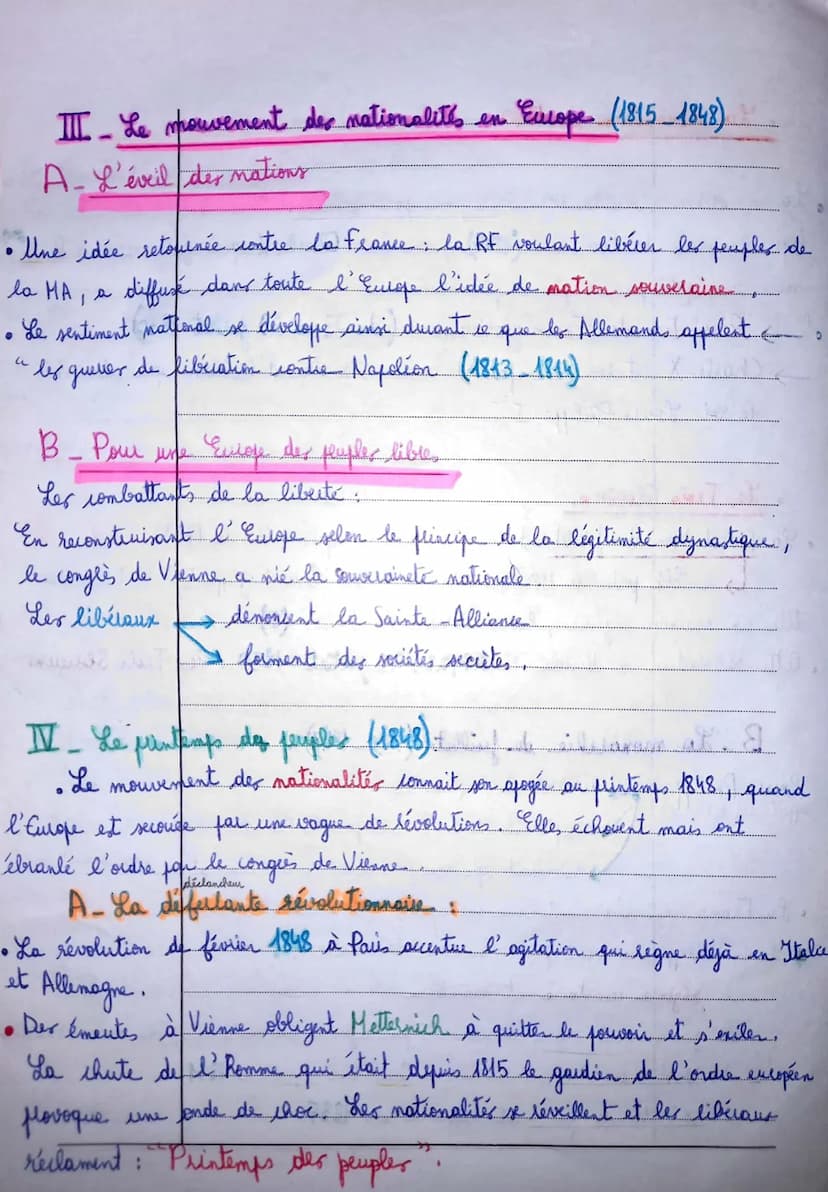 III _ Le mouvement des nationalités en Europe (1815_1848)
A - L'éveil des nations
• Une idée retournée contre la france : la RF voulant libérer les peuples de
la MA, a diffusé dans toute l'Europe l'idée de nation souveraine.
• Le sentiment national se développe ainsi durant ce que les Allemands appelent
" les guerres de libération contre Napoléon (1813_1814)
B _ Pour une Europe des peuples libres
Les combattants de la liberté :
En reconstruisant l'Europe selon le principe de la légitimité dynastique,
le congrès de Vienne a nié la souveraineté nationale.
Les libéraux → dénoncent la Sainte-Alliance
→ forment des sociétés secrètes.
IV _ Le printemps des peuples (1848) :
• Le mouvement des nationalités connait son apogée au printemps 1848, quand
l'Europe est secouée par une vague de révolutions. Elles échouent mais ont
ébranlé l'ordre par le congrès de Vienne.
A - La déferlante révolutionnaire :
• La révolution de février 1848 à Paris accentue l'agitation qui règne déjà en Italie
et Allemagne.
• Des émeutes à Vienne obligent Metternich à quitter le pouvoir et s'exiler.
La chute de l'Romme qui était depuis 1815 le gardien de l'ordre européen
provoque une onde de choc. Les nationalités se réveillent et les libéraux
réclament : "Printemps des peuples".